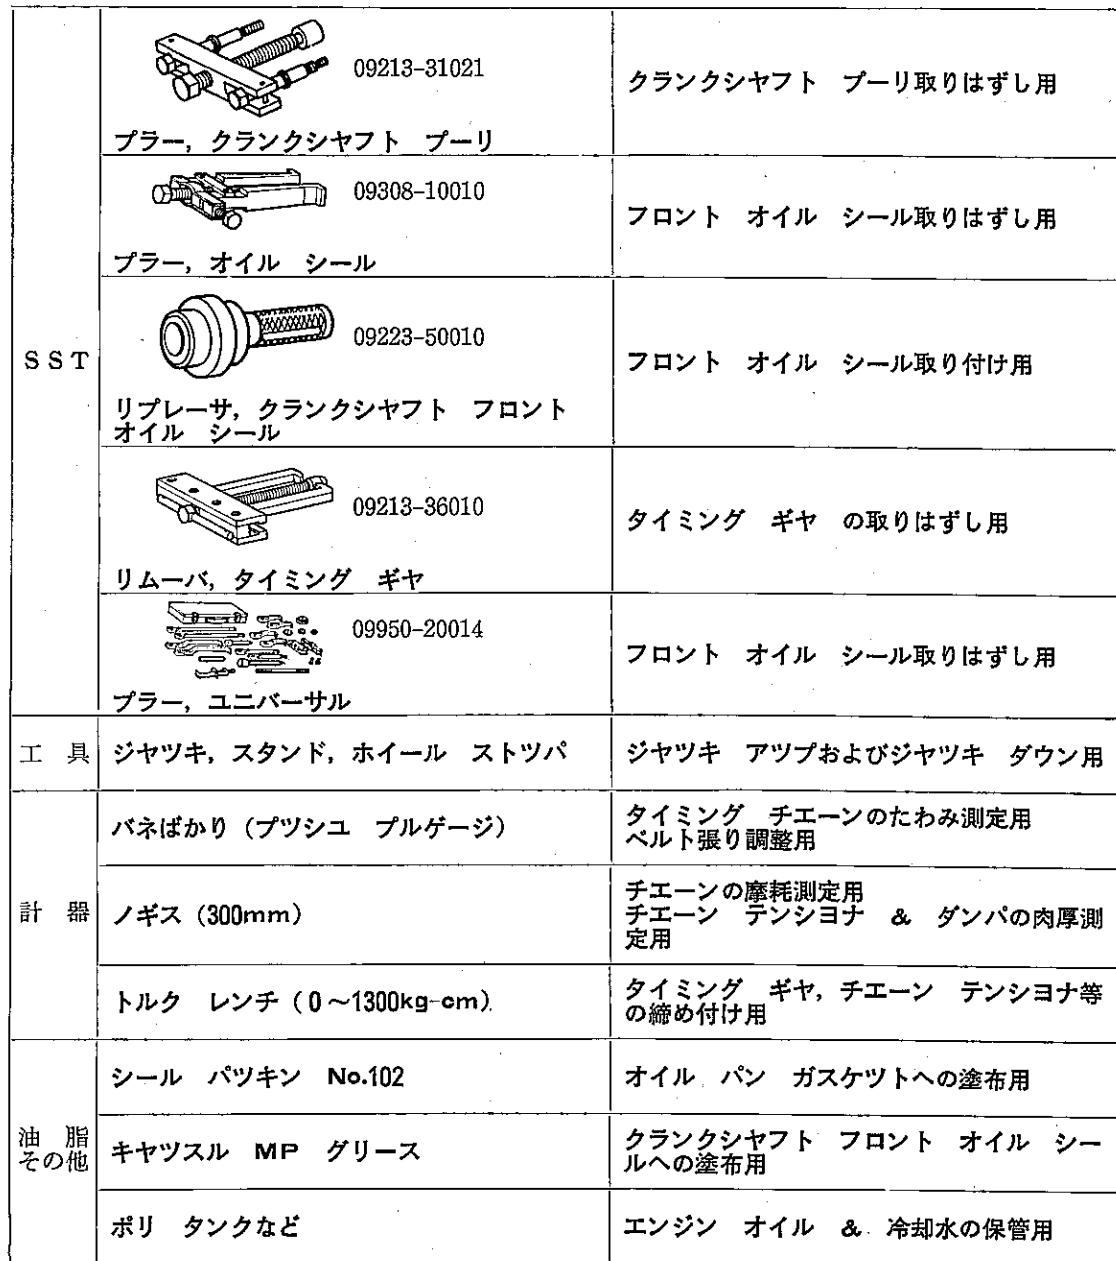 SST
09213-31021
プラー，クランクシヤフト　プーリ
クランクシヤフト　プーリ取りはずし用
09308-10010
プラー，オイル　シール
フロント　オイル　シール取りはずし用
09223-50010
リプレーサ，クランクシヤフト　フロント
オイル　シール
フロント　オイル　シール取り付け用
09213-36010
リムーバ，タイミング　ギヤ
タイミング　ギヤ　の取りはずし用
09950-20014
プラー，ユニバーサル
フロント　オイル　シール取りはずし用
工　具
ジヤツキ，スタンド，ホイール　ストツパ
ジヤツキ　アツプおよびジヤツキ　ダウン用
計　器
バネばかり（プツシユ　プルゲージ）
タイミング　チエーンのたわみ測定用
ベルト張り調整用
ノギス（300mm）
チエーンの摩耗測定用
チエーン　テンシヨナ　＆　ダンパの肉厚測
定用
トルク　レンチ（0～1300kg-cm）
タイミング　ギヤ，チエーン　テンシヨナ等
の締め付け用
油　脂
その他
シール　パツキン　No.102
オイル　パン　ガスケツトへの塗布用
キヤツスル　MP　グリース
クランクシヤフト　フロント　オイル　シー
ルへの塗布用
ポリ　タンクなど
エンジン　オイル　＆　冷却水の保管用